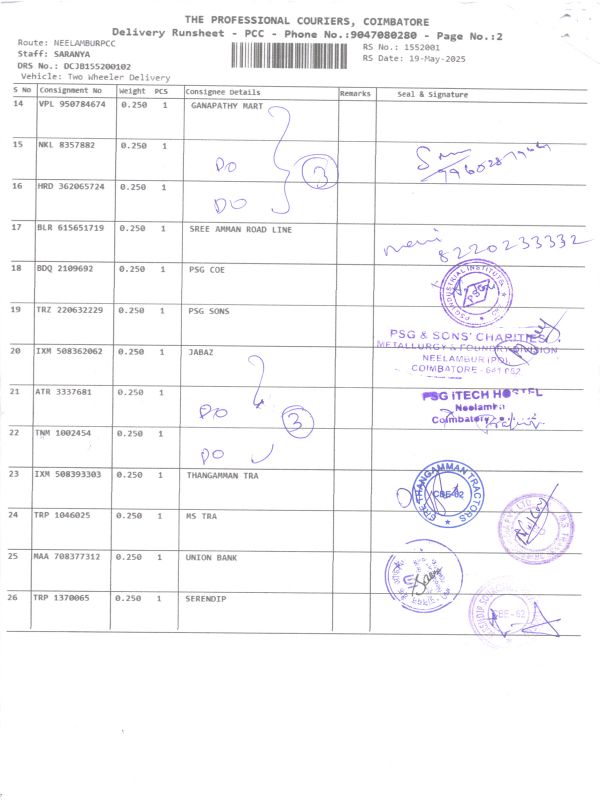 THE PROFESSIONAL COURIERS, COIMBATORE
Delivery Runsheet - PCC - Phone No.:9047080280 - Page No.:2
Route: NEELAMBURPCC
RS No.: 1552001
Staff: SARANYA
RS Date: 19-May-2025
DRS No.: DCJB155200102
Vehicle: Two Wheeler Delivery
S No Consignment No Weight PCS Consignee Details Remarks Seal & Signature
14 VPL 950784674 0.250 1 GANAPATHY MART
15 NKL 8357882 0.250 1 DO 3
16 HRD 362065724 0.250 1 DO
17 BLR 615651719 0.250 1 SREE AMMAN ROAD LINE 8220233332
18 BDQ 2109692 0.250 1 PSG COE
PSG INDUSTRIAL INSTITUTE
19 TRZ 220632229 0.250 1 PSG SONS
PSG & SONS' CHARITIES
METALLURGY & FOUNDRY DIVISION
20 IXM 508362062 0.250 1 JABAZ
NEELAMBUR (PO),
COIMBATORE - 641 062
21 ATR 3337681 0.250 1 DO 3
PSG iTECH HOSTEL
Neelambur
Coimbatore
22 TNM 1002454 0.250 1 DO
23 IXM 508393303 0.250 1 THANGAMMAN TRA
SREE THANGAMMAN TRACTORS
CBE-62
24 TRP 1046025 0.250 1 MS TRA
25 MAA 708377312 0.250 1 UNION BANK
26 TRP 1370065 0.250 1 SERENDIP
CBE-62